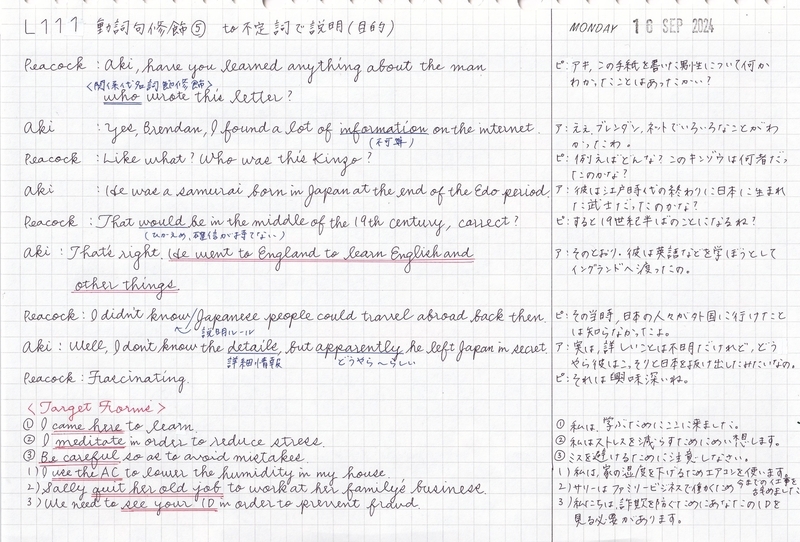 L111 動詞句修飾⑤ to不定詞で説明(目的)
MONDAY 16 SEP 2024
Peacock: Aki, have you learned anything about the man
<関係代名詞節修飾>
who wrote this letter?
Aki : Yes, Brendan, I found a lot of information on the internet.
(不可算)
Peacock: Like what? Who was this Kinzo?
Aki : He was a samurai born in Japan at the end of the Edo period.
Peacock: That would be in the middle of the 19th century, correct?
(ひかえめ、確信が持てない)
Aki : That's right. He went to England to learn English and
other things.
Peacock: I didn't know Japanese people could travel abroad back then.
説明ルール
Aki : Well, I don't know the details, but apparently he left Japan in secret.
詳細情報 どうやら〜らしい
Peacock: Fascinating.
<Target Forms>
① I came here to learn.
② I meditate in order to reduce stress.
③ Be careful so as to avoid mistakes.
1) I use the AC to lower the humidity in my house.
2) Sally quit her old job to work at her family's business.
3) We need to see your ID in order to prevent fraud.
ピ: アキ、この手紙を書いた男性について何か
わかったことはあったかい?
ア: ええ、ブレンダン、ネットでいろいろなことがわ
かったわ。
ピ: 例えばどんな? このキンゾウは何者だっ
たのかな?
ア: 彼は江戸時代の終わりに日本に生まれ
た武士だったのかな?
ピ: すると19世紀半ばのことになるね?
ア: そのとおり。彼は英語などを学ぼうとして
イングランドへ渡ったの。
ピ: その当時、日本の人々が外国に行けたこと
は知らなかったよ。
ア: 実は、詳しいことは不明だけれど、どう
やら彼はこっそりと日本を抜け出したみたいなの。
ピ: それは興味深いね。
① 私は、学ぶためにここに来ました。
② 私はストレスを減らすためにめい想します。
③ ミスを避けるために注意しなさい。
1) 私は、家の湿度を下げるためエアコンを使います。
2) サリーはファミリービジネスで働くため今までの仕事を
辞めました
3) 私たちは、詐欺を防ぐためにあなたのIDを
見る必要があります。